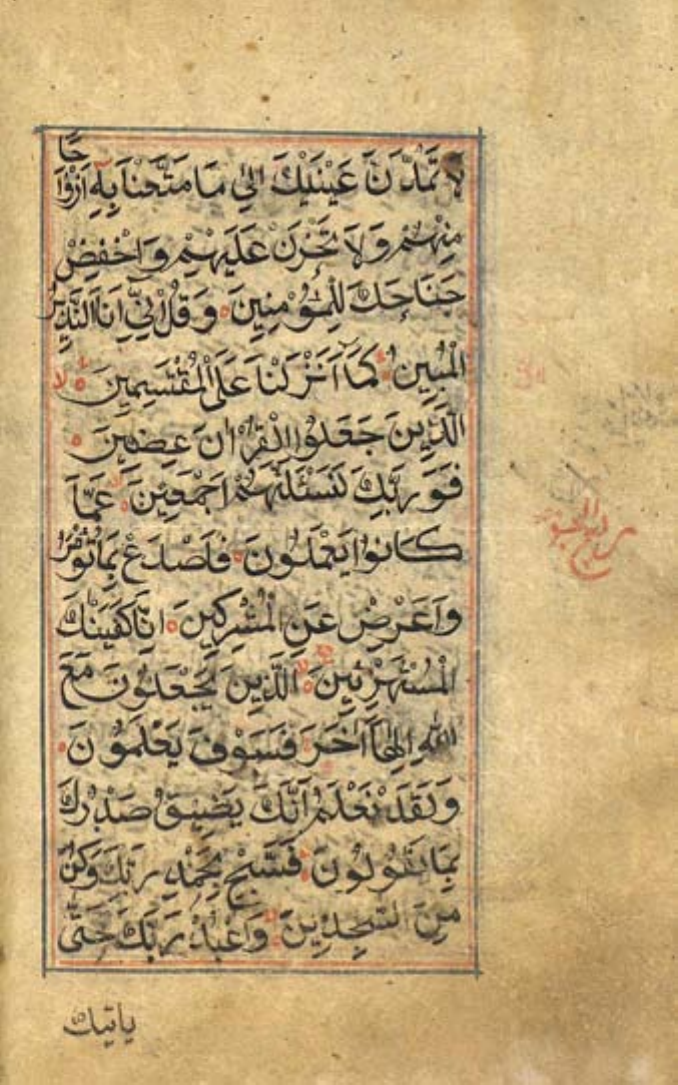 لَا تَمُدَّنَّ عَيْنَيْكَ اِلٰى مَا مَتَّعْنَا بِهٖٓ اَزْوَاجًا
مِنْهُمْ وَلَا تَحْزَنْ عَلَيْهِمْ وَاخْفِضْ
جَنَاحَكَ لِلْمُؤْمِنِينَ وَقُلْ اِنِّىٓ اَنَا النَّذِيرُ
الْمُبِينُ كَمَآ اَنْزَلْنَا عَلَى الْمُقْتَسِمِينَ لا
الَّذِينَ جَعَلُوا الْقُرْاٰنَ عِضِينَ
فَوَرَبِّكَ لَنَسْئَلَنَّهُمْ اَجْمَعِينَ عَمَّا
كَانُوا يَعْمَلُونَ فَاصْدَعْ بِمَا تُؤْمَرُ
وَاَعْرِضْ عَنِ الْمُشْرِكِينَ اِنَّا كَفَيْنٰكَ
الْمُسْتَهْزِئِينَ الَّذِينَ يَجْعَلُونَ مَعَ
اللّٰهِ اِلٰهًا اٰخَرَ فَسَوْفَ يَعْلَمُونَ
وَلَقَدْ نَعْلَمُ اَنَّكَ يَضِيقُ صَدْرُكَ
بِمَا يَقُولُونَ فَسَبِّحْ بِحَمْدِ رَبِّكَ وَكُنْ
مِنَ السّٰجِدِينَ وَاعْبُدْ رَبَّكَ حَتّٰى
ياتيك